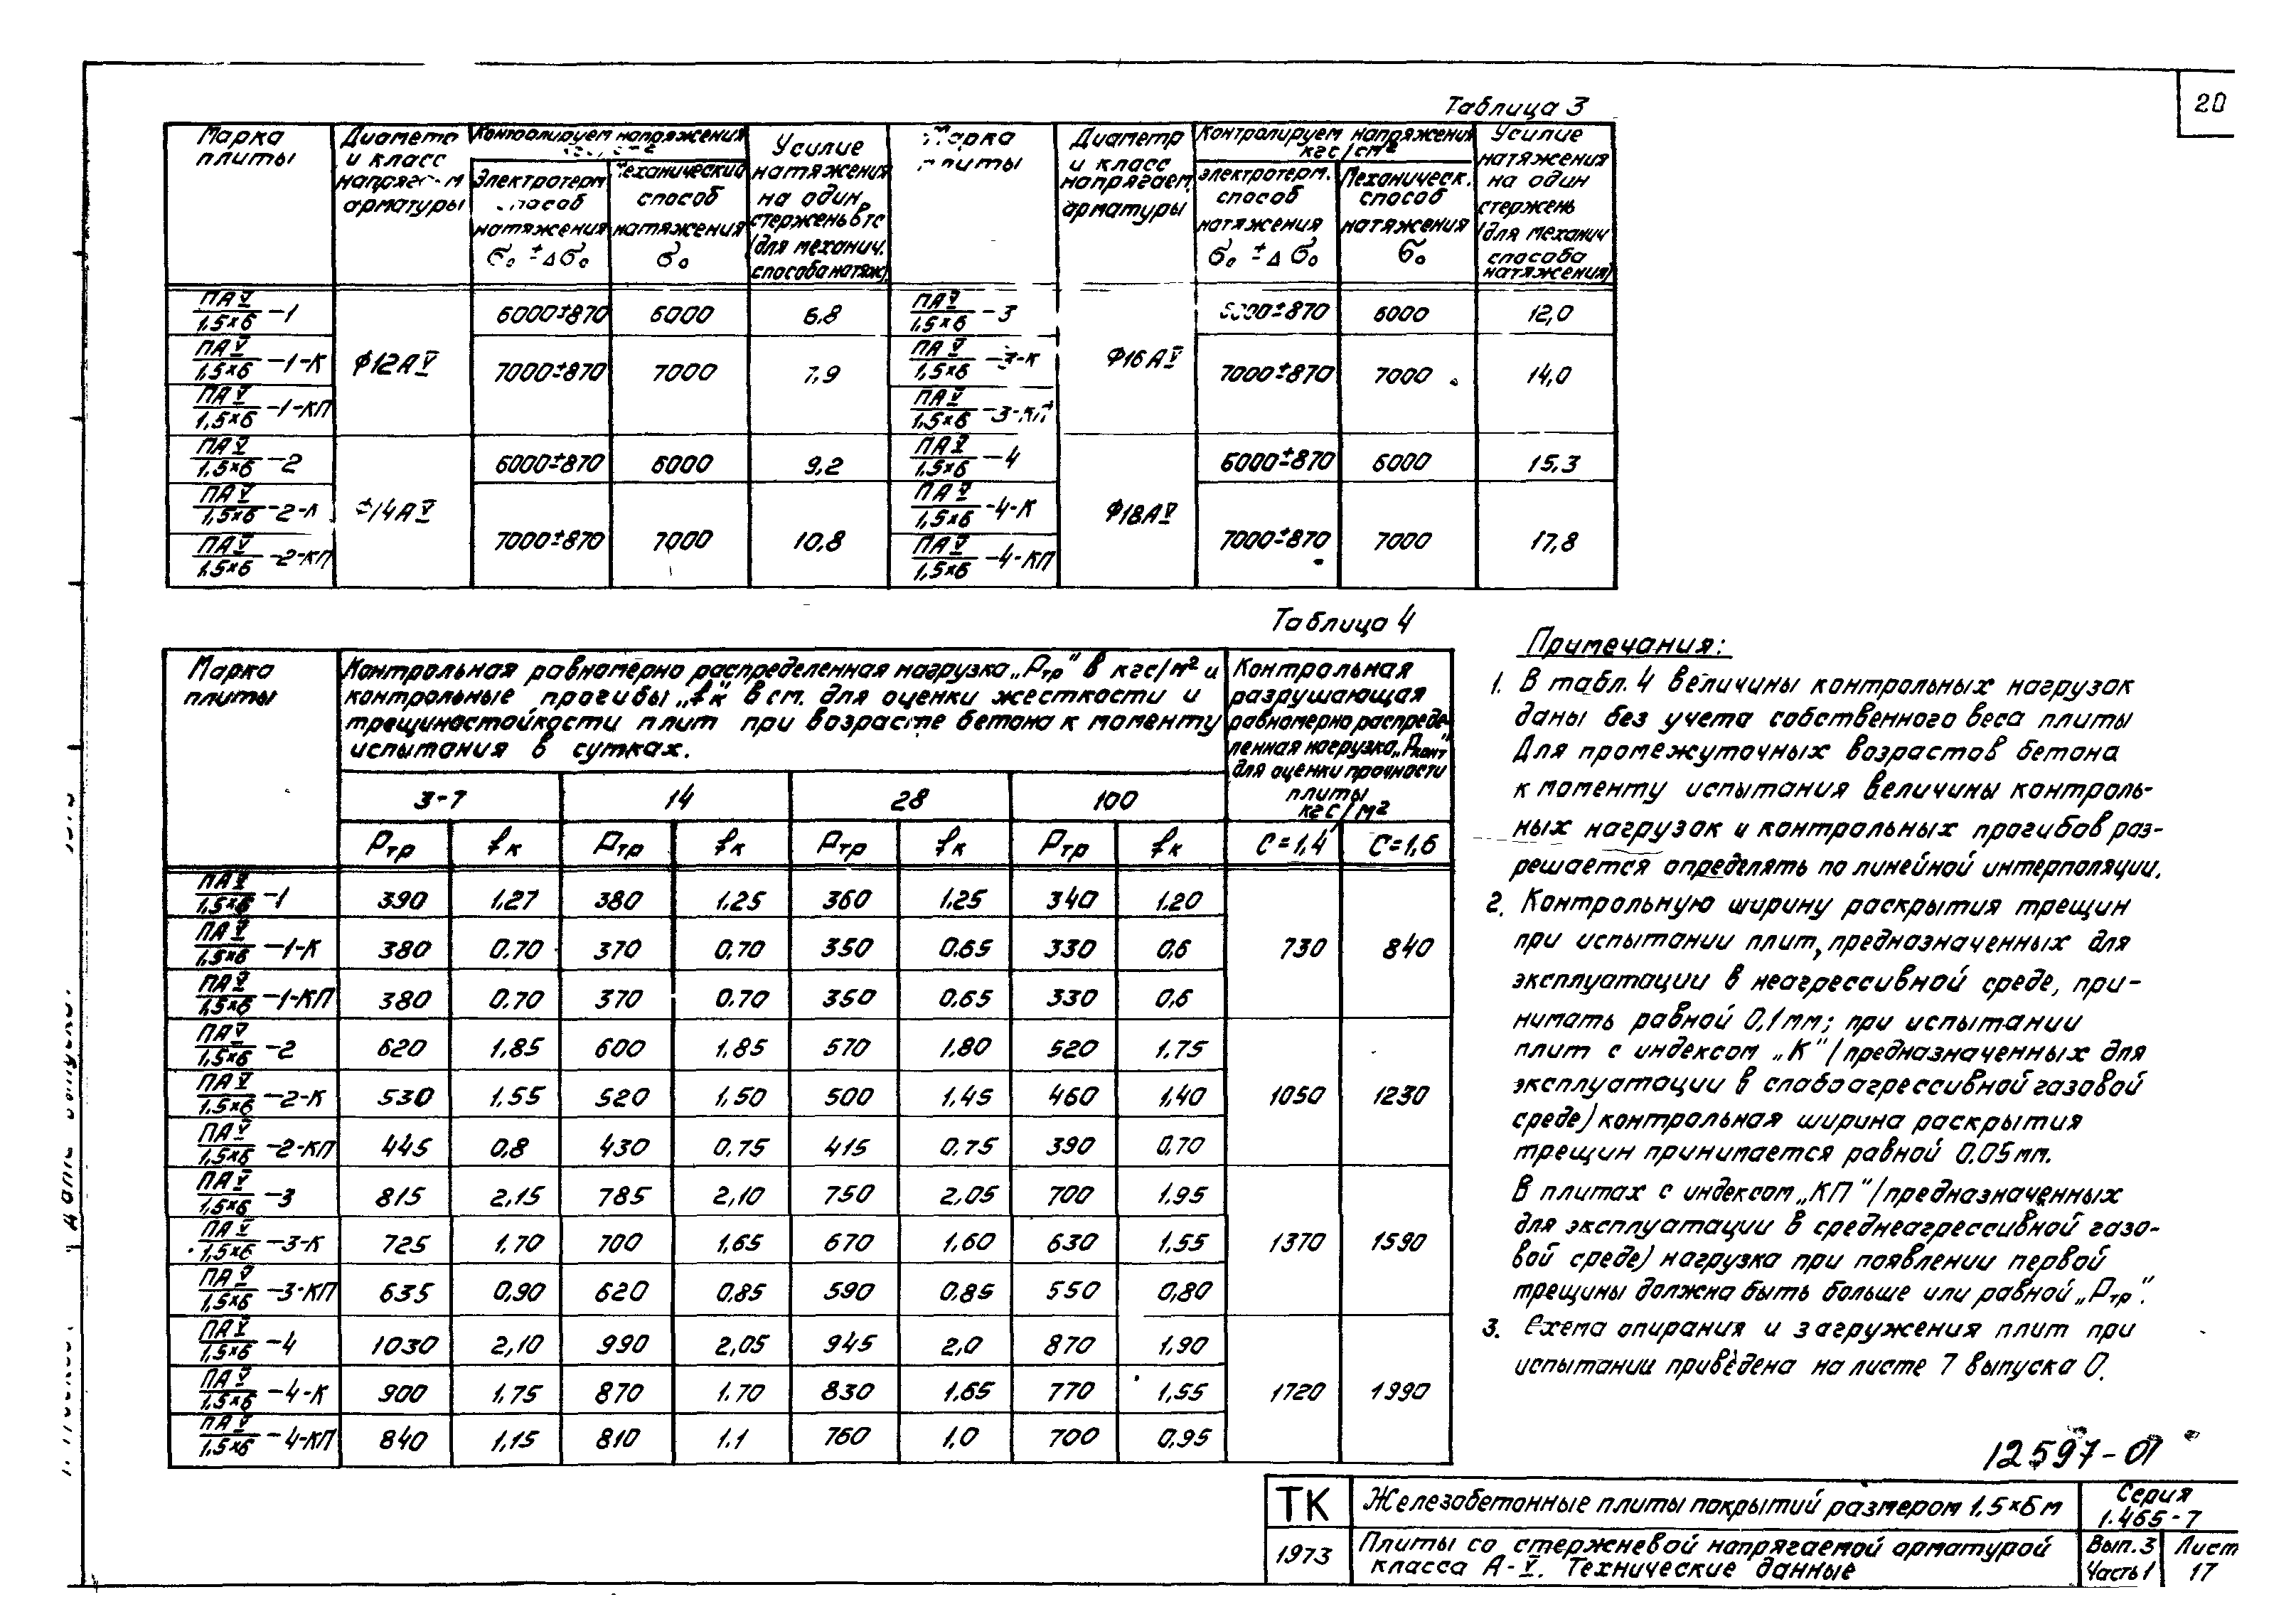 20
Таблица 3
Марка плиты | Диаметр и класс напрягаем арматуры | Контролируем напряжения | Усилие натяжения на один стержень в тс (для механич. способа натяж) | Марка плиты | Диаметр и класс напрягаем. арматуры | Контролируем напряжения кгс/см² | Усилие натяжения на один стержень (для механич способа натяжения)
Электротерм способ натяжения σ₀ ± Δσ₀ | Механический способ натяжения σ₀ | Электротерм. способ натяжения σ₀ ± Δσ₀ | Механическ. способ натяжения σ₀
ПАV/1,5×6 -1 | Ф12АV | 6000±870 | 6000 | 6.8 | ПАV/1,5×6 -3 | Ф16АV | 6000±870 | 6000 | 12,0
ПАV/1,5×6 -1-К | 7000±870 | 7000 | 7,9 | ПАV/1,5×6 -3-К | 7000±870 | 7000 | 14,0
ПАV/1,5×6 -1-КП | ПАV/1,5×6 -3-КП
ПАV/1,5×6 -2 | Ф14АV | 6000±870 | 6000 | 9,2 | ПАV/1,5×6 -4 | Ф18АV | 6000±870 | 6000 | 15,3
ПАV/1,5×6 -2-К | 7000±870 | 7000 | 10,8 | ПАV/1,5×6 -4-К | 7000±870 | 7000 | 17,8
ПАV/1,5×6 -2-КП | ПАV/1,5×6 -4-КП
Таблица 4
Марка плиты
Контрольная равномерно распределенная нагрузка „Pтр" в кгс/м² и
контрольные прогибы „fк" в см. для оценки жесткости и
трещиностойкости плит при возрасте бетона к моменту
испытания в сутках.
Контрольная
разрушающая
равномерно распреде-
ленная нагрузка „Pконт"
для оценки прочности
плиты
кгс/м²
3-7 | 14 | 28 | 100
Pтр | fк | Pтр | fк | Pтр | fк | Pтр | fк | C=1,4 | C=1,6
ПАV/1,5×6 -1 | 390 | 1.27 | 380 | 1.25 | 360 | 1.25 | 340 | 1.20
ПАV/1,5×6 -1-К | 380 | 0.70 | 370 | 0,70 | 350 | 0.65 | 330 | 0,6 | 730 | 840
ПАV/1,5×6 -1-КП | 380 | 0.70 | 370 | 0.70 | 350 | 0.65 | 330 | 0,6
ПАV/1,5×6 -2 | 620 | 1,85 | 600 | 1.85 | 570 | 1.80 | 520 | 1.75
ПАV/1,5×6 -2-К | 530 | 1.55 | 520 | 1,50 | 500 | 1,45 | 460 | 1,40 | 1050 | 1230
ПАV/1,5×6 -2-КП | 445 | 0,8 | 430 | 0,75 | 415 | 0,75 | 390 | 0,70
ПАV/1,5×6 -3 | 815 | 2,15 | 785 | 2,10 | 750 | 2,05 | 700 | 1.95
ПАV/1,5×6 -3-К | 725 | 1,70 | 700 | 1,65 | 670 | 1,60 | 630 | 1,55 | 1370 | 1590
ПАV/1,5×6 -3-КП | 635 | 0,90 | 620 | 0,85 | 590 | 0,85 | 550 | 0,80
ПАV/1,5×6 -4 | 1030 | 2,10 | 990 | 2,05 | 945 | 2,0 | 870 | 1,90
ПАV/1,5×6 -4-К | 900 | 1,75 | 870 | 1.70 | 830 | 1,65 | 770 | 1,55 | 1720 | 1990
ПАV/1,5×6 -4-КП | 840 | 1,15 | 810 | 1.1 | 760 | 1,0 | 700 | 0,95
Примечания:
1. В табл. 4 величины контрольных нагрузок
даны без учета собственного веса плиты
Для промежуточных возрастов бетона
к моменту испытания величины контроль-
ных нагрузок и контрольных прогибов раз-
решается определять по линейной интерполяции.
2. Контрольную ширину раскрытия трещин
при испытании плит, предназначенных для
эксплуатации в неагрессивной среде, при-
нимать равной 0,1мм; при испытании
плит с индексом „К"/предназначенных для
эксплуатации в слабоагрессивной газовой
среде) контрольная ширина раскрытия
трещин принимается равной 0.05мм.
В плитах с индексом „КП"/предназначенных
для эксплуатации в среднеагрессивной газо-
вой среде) нагрузка при появлении первой
трещины должна быть больше или равной „Pтр".
3. Схема опирания и загружения плит при
испытании приведена на листе 7 выпуска 0.
12597-01
ТК | Железобетонные плиты покрытий размером 1,5×6м | Серия 1.465-7
1973 | Плиты со стержневой напрягаемой арматурой класса А-V. Технические данные | Вып.3 Часть 1 | Лист 17